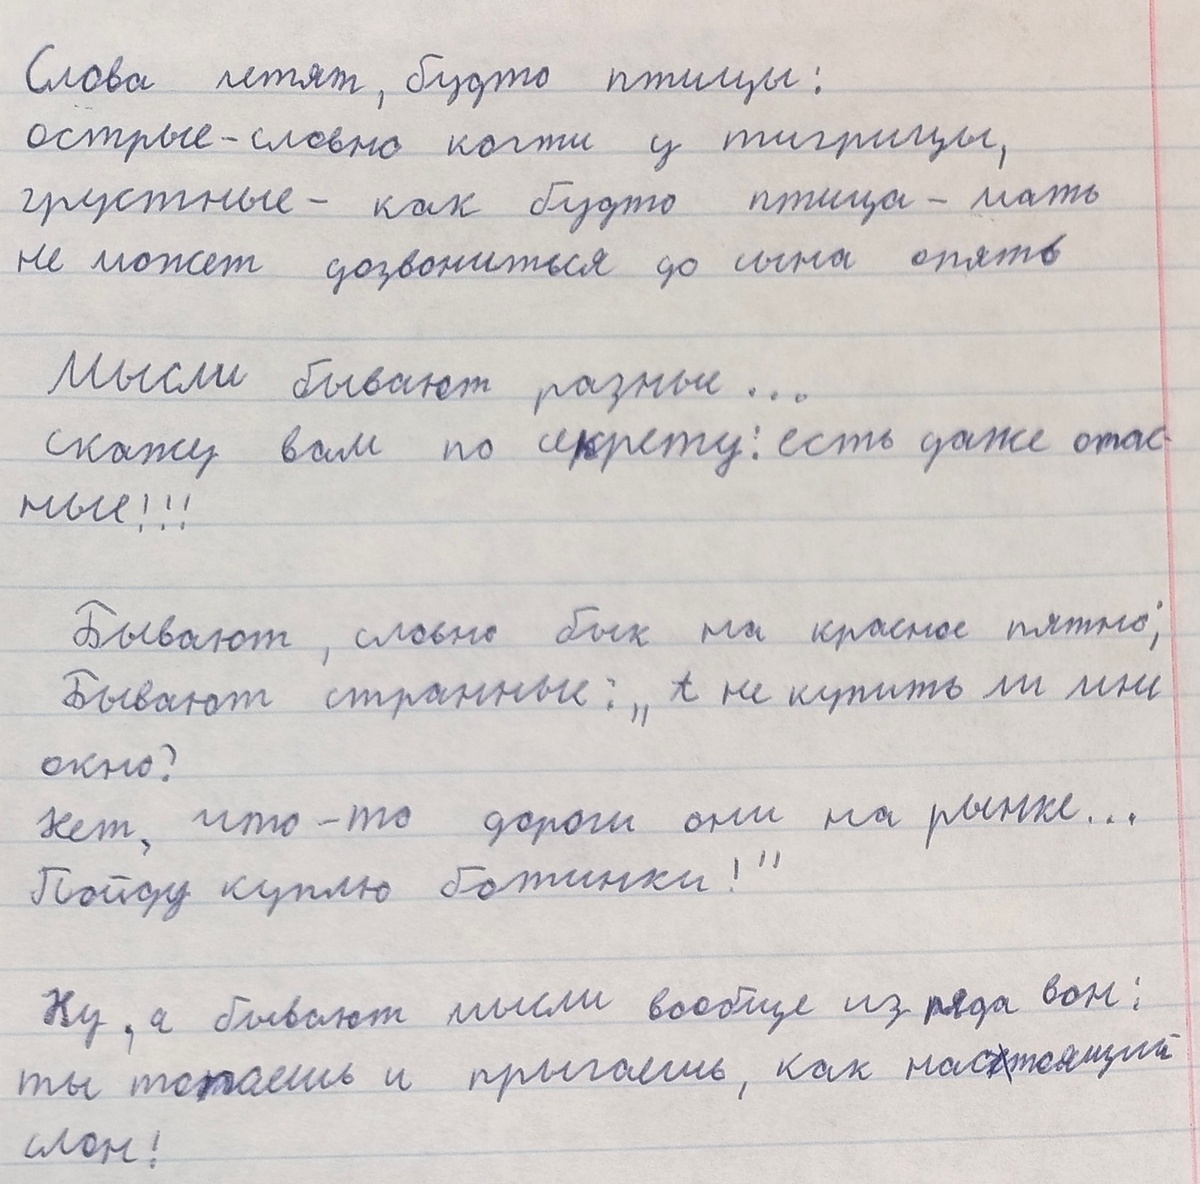 Слова летят, будто птицы:
острые-словно когти у тигрицы,
грустные- как будто птица-мать
не может дозвониться до сына опять
Мысли бывают разные...
скажу вам по секрету: есть даже опас-
ные!!!
Бывают, словно бык на красное пятно;
Бывают странные: „ не купить ли мне
окно?
Нет, что-то дороги они на рынке...
Пойду куплю ботинки!"
Ну, а бывают мысли вообще из ряда вон:
ты топаешь и прыгаешь, как настоящий
слон!